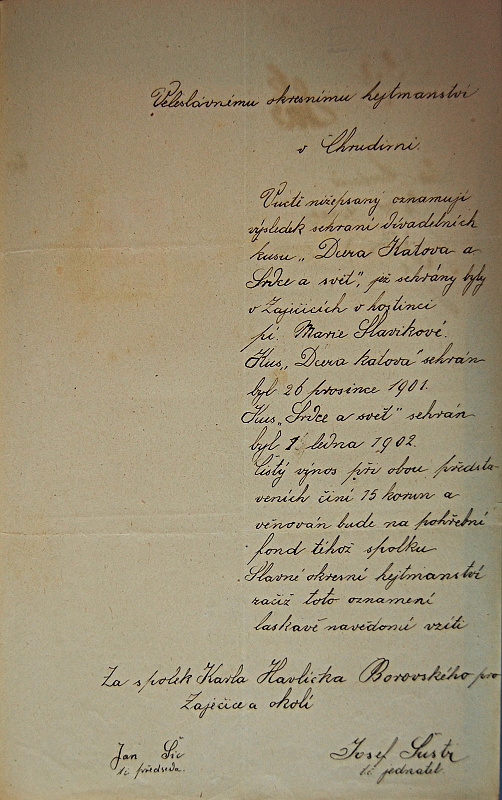 Veleslávnému okresnímu hejtmanství
v Chrudimi.
Vuctě nížepsaný oznamují
výsledek sehraní divadelních
kusu „Dcera Katova a
Srdce a svět", jež sehrány byly
v Zaječicích v hostinci
pí. Marie Slavíkové.
Kus „Dcera katova" sehrán
byl 26 prosince 1901.
Kus „Srdce a svět" sehrán
byl 1 ledna 1902.
Čistý výnos při obou předsta-
veních činí 15 korun a
věnován bude na pohřební
fond tíhož spolku
Slavné okresní hejtmanství
račiž toto oznamení
laskavě navědomí vzíti
Za spolek Karla Havlíčka Borovského pro
Zaječice a okolí
Jan Šíc
tč předseda.
Josef Šustr
tč jednatel.